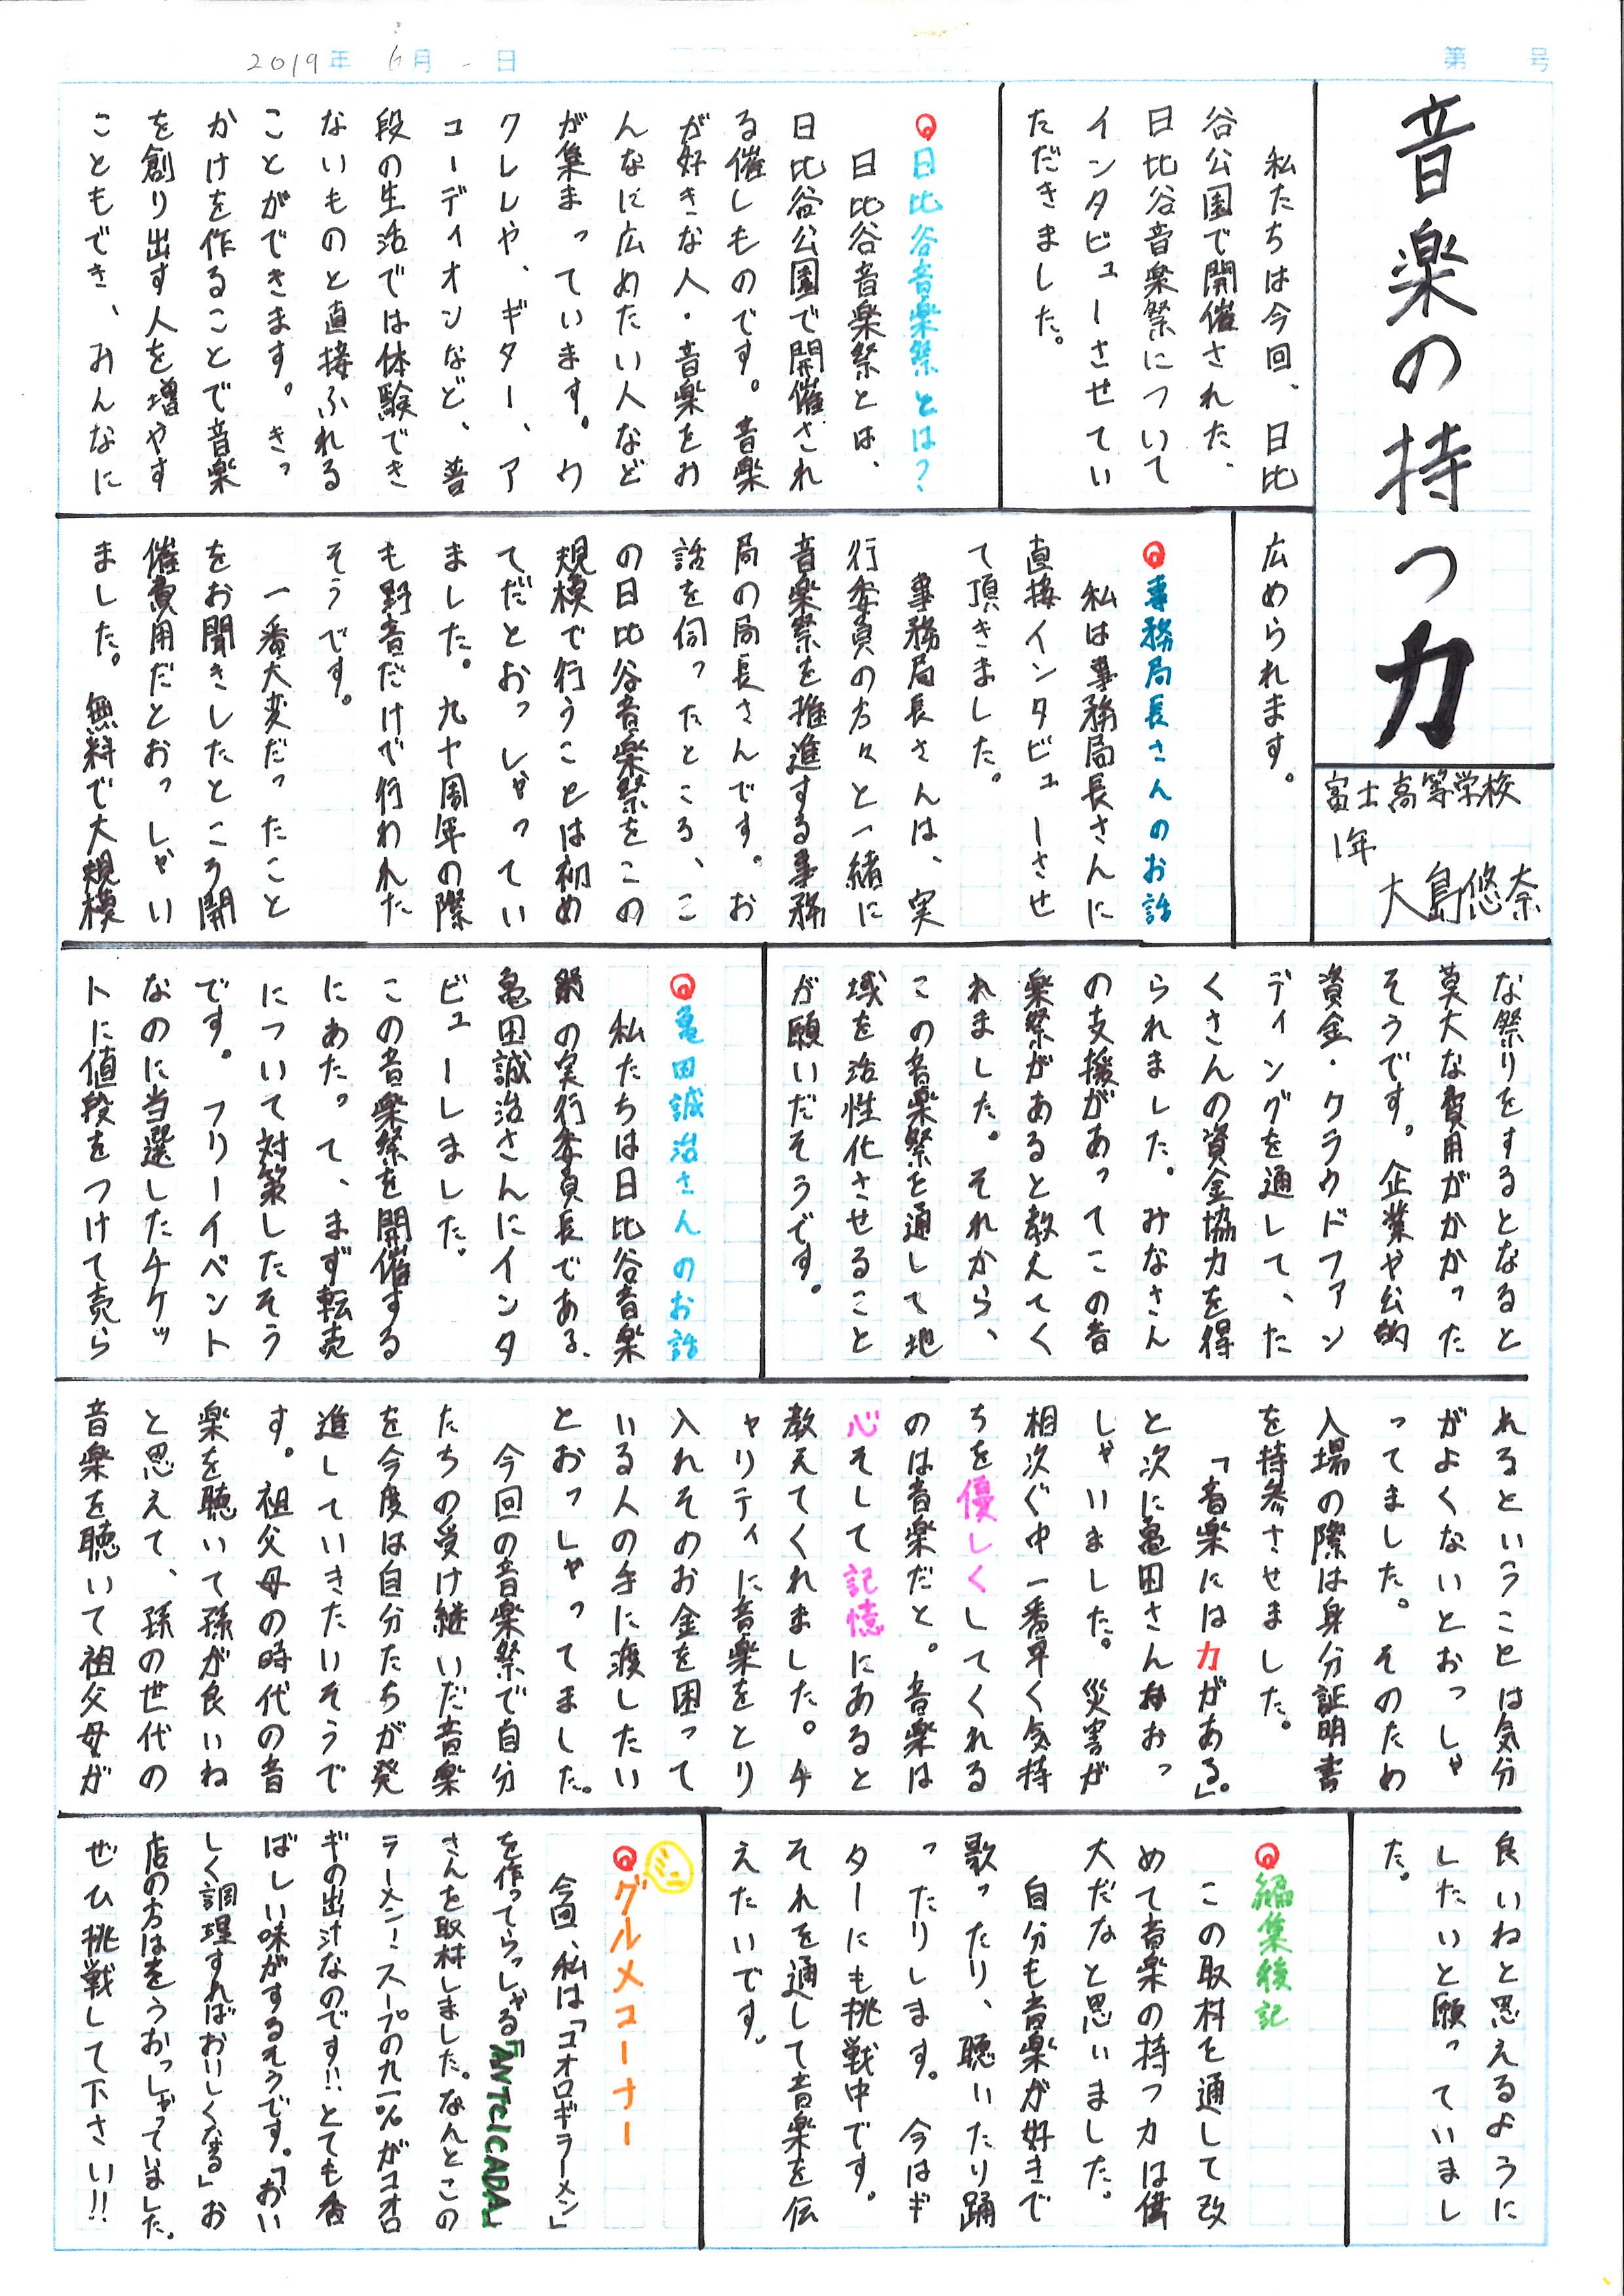 2019年 6月 日
第 号
音楽の持つ力
富士高等学校
1年
大島悠奈
私たちは今回、日比
谷公園で開催された、
日比谷音楽祭について
インタビューさせてい
ただきました。
日比谷音楽祭とは？
日比谷音楽祭とは、
日比谷公園で開催され
る催しものです。音楽
が好きな人・音楽をみ
んなに広めたい人など
が集まっています。ウ
クレレや、ギター、ア
コーディオンなど、普
段の生活では体験でき
ないものと直接ふれる
ことができます。きっ
かけを作ることで音楽
を創り出す人を増やす
こともでき、みんなに
広められます。
事務局長さんのお話
私は事務局長さんに
直接インタビューさせ
て頂きました。
事務局長さんは、実
行委員の方々と一緒に
音楽祭を推進する事務
局の局長さんです。お
話を伺ったところ、こ
の日比谷音楽祭をこの
規模で行うことは初め
てだとおっしゃってい
ました。九十周年の際
も野音だけで行われた
そうです。
一番大変だったこと
をお聞きしたところ開
催費用だとおっしゃい
ました。無料で大規模
な祭りをするとなると
莫大な費用がかかった
そうです。企業や公的
資金・クラウドファン
ディングを通して、た
くさんの資金協力を得
られました。みなさん
の支援があってこの音
楽祭があると教えてく
れました。それから、
この音楽祭を通して地
域を活性化させること
が願いだそうです。
亀田誠治さんのお話
私たちは日比谷音楽
祭の実行委員長である、
亀田誠治さんにインタ
ビューしました。
この音楽祭を開催する
にあたって、まず転売
について対策したそう
です。フリーイベント
なのに当選したチケッ
トに値段をつけて売ら
れるということは気分
がよくないとおっしゃ
ってました。そのため
入場の際は身分証明書
を持参させました。
「音楽には力がある」。
と次に亀田さんはおっ
しゃいました。災害が
相次ぐ中一番早く気持
ちを優しくしてくれる
のは音楽だと。音楽は
心そして記憶にあると
教えてくれました。チ
ャリティに音楽をとり
入れそのお金を困って
いる人の手に渡したい
とおっしゃってました。
今回の音楽祭で自分
たちの受け継いだ音楽
を今度は自分たちが発
進していきたいそうで
す。祖父母の時代の音
楽を聴いて孫が良いね
と思えて、孫の世代の
音楽を聴いて祖父母が
良いねと思えるように
したいと願っていまし
た。
編集後記
この取材を通して改
めて音楽の持つ力は偉
大だなと思いました。
自分も音楽が好きで
歌ったり、聴いたり踊
ったりします。今はギ
ターにも挑戦中です。
それを通して音楽を伝
えたいです。
ミニ
グルメコーナー
今回、私は「コオロギラーメン」
を作ってらっしゃる「ANTCICADA」
さんを取材しました。なんとこの
ラーメン！スープの九一％がコオロ
ギの出汁なのです!!とても香
ばしい味がするそうです。「おい
しく調理すればおいしくなる」お
店の方はそうおっしゃっていました。
ぜひ挑戦して下さい!!